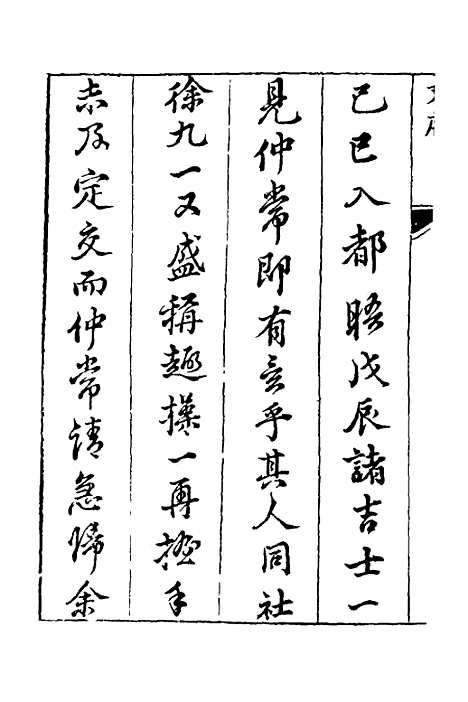 己巳入都晤戊辰諸吉士一
見仲常即有意乎其人同社
徐九一又盛稱趣操一再握手
未及定交而仲常請急歸余